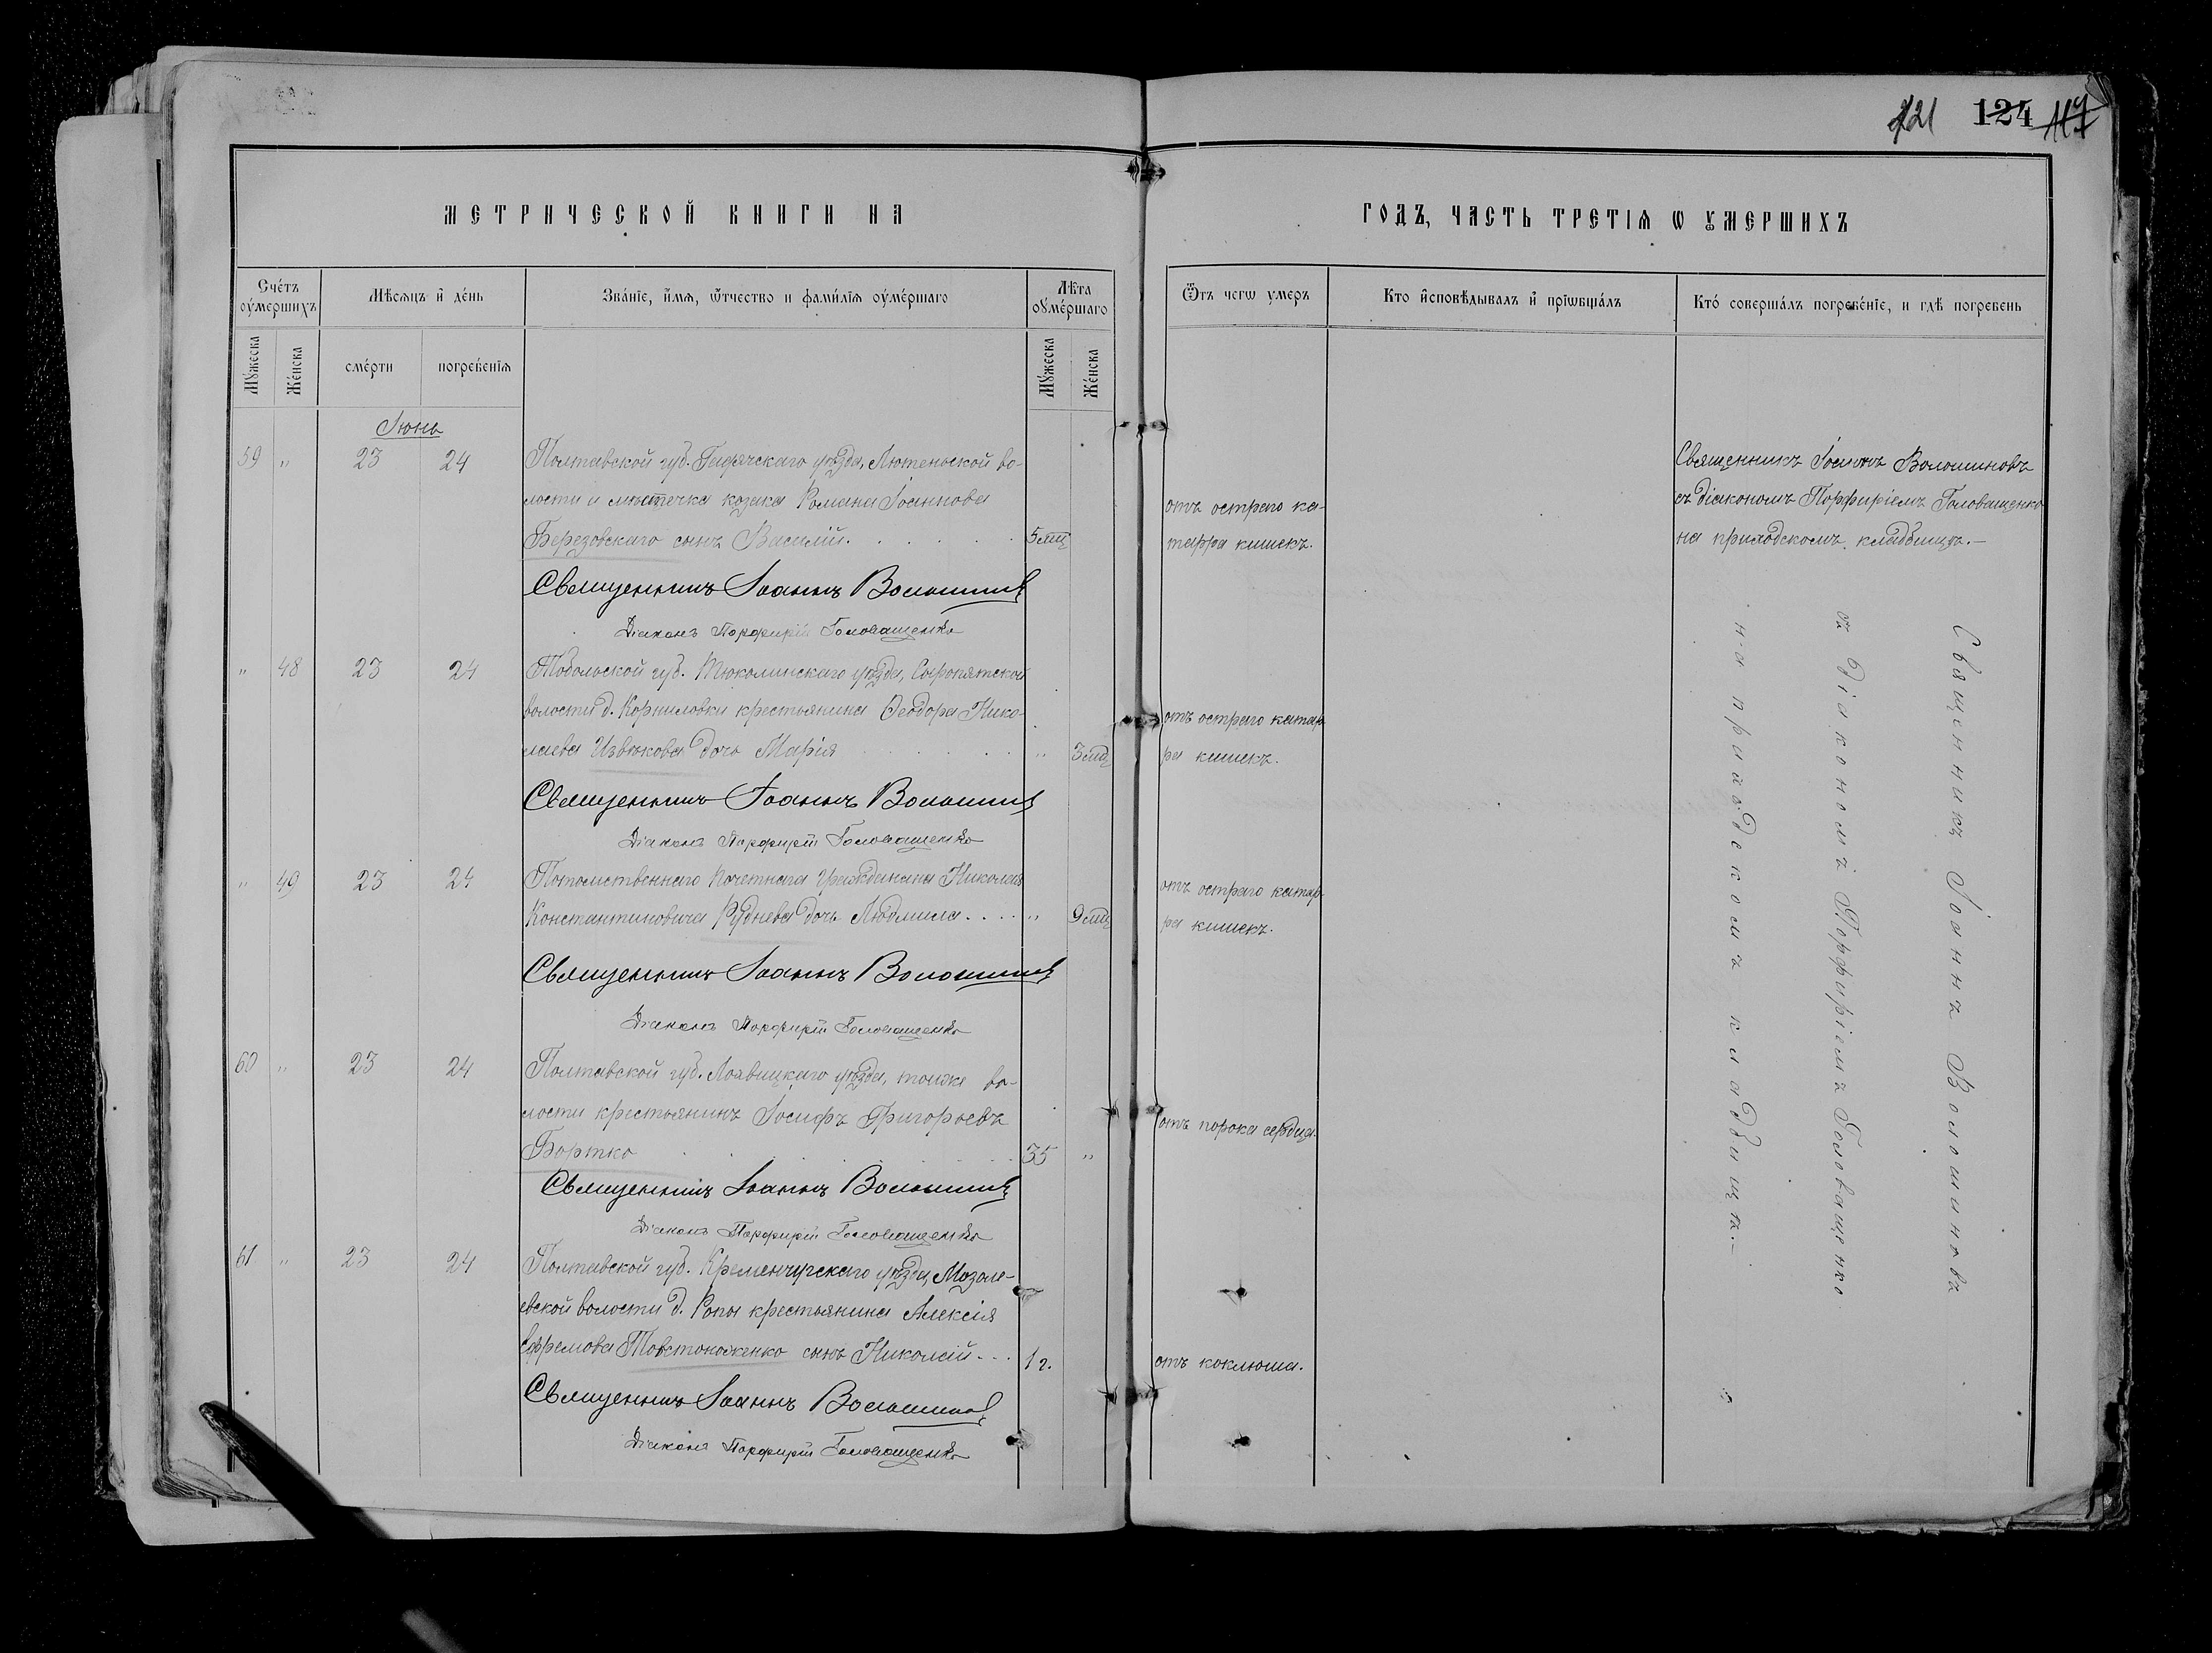 121 124 117
МЕТРИЧЕСКОЙ КНИГИ НА
ГОДЪ, ЧАСТЬ ТРЕТІѦ Ѡ ОУМЕРШИХЪ
Счетъ оумершихъ
Мѣсяцъ и день
Званіе, имя, ѿчество и фамилія оумершаго
Лѣта оумершаго
Ѿъ чегѡ умеръ
Кто исповѣдывалъ и пріѡбщалъ
Кто совершалъ погребеніе, и гдѣ погребенъ
Мужеска
Женска
смерти
погребенія
Мужеска
Женска
Іюнь
59 „ 23 24 Полтавской губ. Гадячскаго уѣзда, Лютеньской во-
лости и мѣстечка козака Романа Іоаннова
Березовскаго сынъ Василій. . . . . . 5 мц
отъ остраго ка-
тарра кишекъ.
Священникъ Іоаннъ Волошиновъ
съ діакономъ Порфиріемъ Головащенко
на приходскомъ кладбищѣ.—
Священникъ Іоаннъ Волошинов
Діаконъ Порфирій Головащенко
„ 48 23 24 Тобольской губ. Тюкалинскаго уѣзда, Сыропятской
волости д. Корниловки крестьянина Ѳеодора Нико-
лаева Извекова дочь Марія . . . . . „ 3 мц
отъ остраго катар-
ра кишекъ.
Священникъ Іоаннъ Волошинов
Діаконъ Порфирій Головащенко
„ 49 23 24 Потомственнаго Почетнаго Гражданина Николая
Константиновича Руднева дочь Людмила. . . . „ 9 мц
отъ остраго катар-
ра кишекъ.
Священникъ Іоаннъ Волошинов
Діаконъ Порфирій Головащенко
60 „ 23 24 Полтавской губ. Лохвицкаго уѣзда, тойже во-
лости крестьянинъ Іосифъ Григорьевъ
Бортко . . . . . . . . 35 „
отъ порока сердца.
Священникъ Іоаннъ Волошинов
Діаконъ Порфирій Головащенко
61 „ 23 24 Полтавской губ. Кременчугскаго уѣзда, Мозоле-
евской волости д. Ропы крестьянина Алексія
Ефремова Товстоноженко сынъ Николай. . . 1 г.
отъ коклюша.
Священникъ Іоаннъ Волошинов
Діаконъ Порфирій Головащенко
Священникъ Іоаннъ Волошиновъ
съ діакономъ Порфиріемъ Головащенко
на приходскомъ кладбищѣ.—